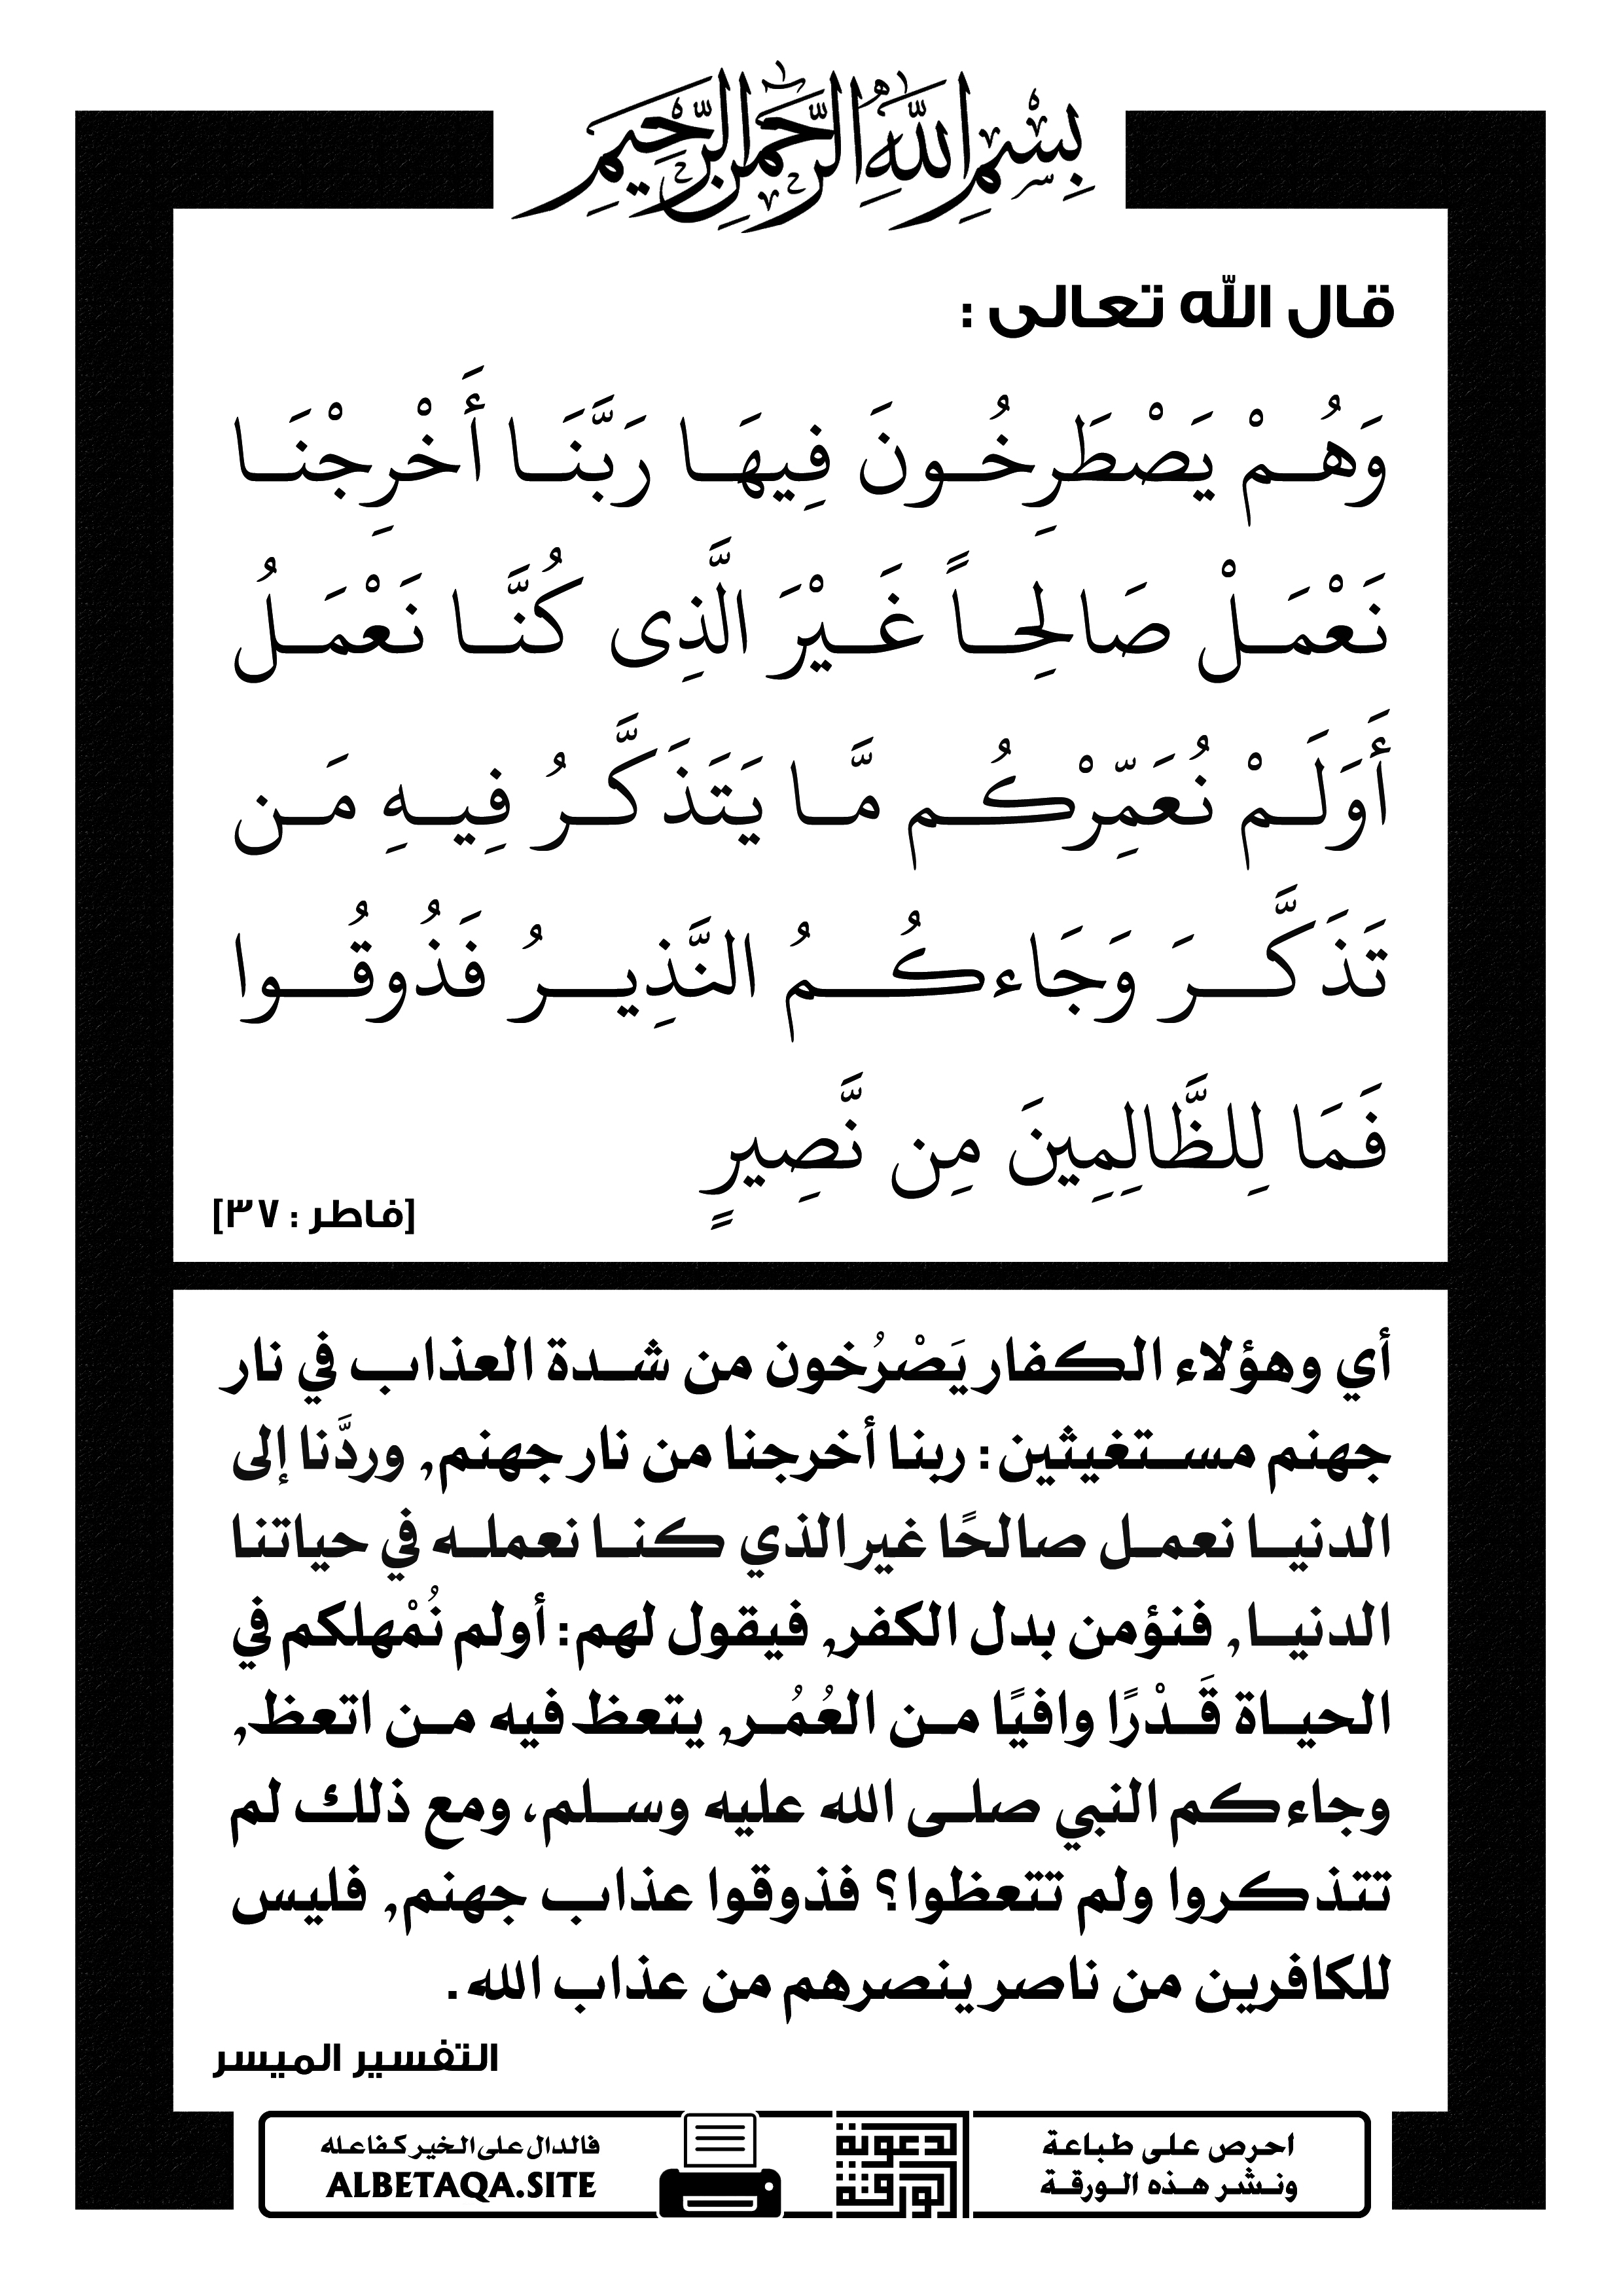 بِسْمِ اللَّهِ الرَّحْمَٰنِ الرَّحِيمِ
قال الله تعالى :
وَهُمْ يَصْطَرِخُونَ فِيهَا رَبَّنَا أَخْرِجْنَا
نَعْمَلْ صَالِحاً غَيْرَ الَّذِى كُنَّا نَعْمَلُ
أَوَلَمْ نُعَمِّرْكُم مَّا يَتَذَكَّرُ فِيهِ مَن
تَذَكَّرَ وَجَاءكُمُ النَّذِيرُ فَذُوقُوا
فَمَا لِلظَّالِمِينَ مِن نَّصِيرٍ
[فاطر : ٣٧]
أي وهؤلاء الكفار يَصْرُخون من شدة العذاب في نار
جهنم مستغيثين: ربنا أخرجنا من نار جهنم, وردَّنا إلى
الدنيا نعمل صالحًا غير الذي كنا نعمله في حياتنا
الدنيا, فنؤمن بدل الكفر, فيقول لهم: أولم نُمْهلكم في
الحياة قَدْرًا وافيًا من العُمُر, يتعظ فيه من اتعظ,
وجاءكم النبي صلى الله عليه وسلم، ومع ذلك لم
تتذكروا ولم تتعظوا؟ فذوقوا عذاب جهنم, فليس
للكافرين من ناصر ينصرهم من عذاب الله.
التفسير الميسر
احرص على طباعة
ونشر هذه الورقة
الورقة
لدعوية
فالدال على الخير كفاعله
ALBETAQA.SITE